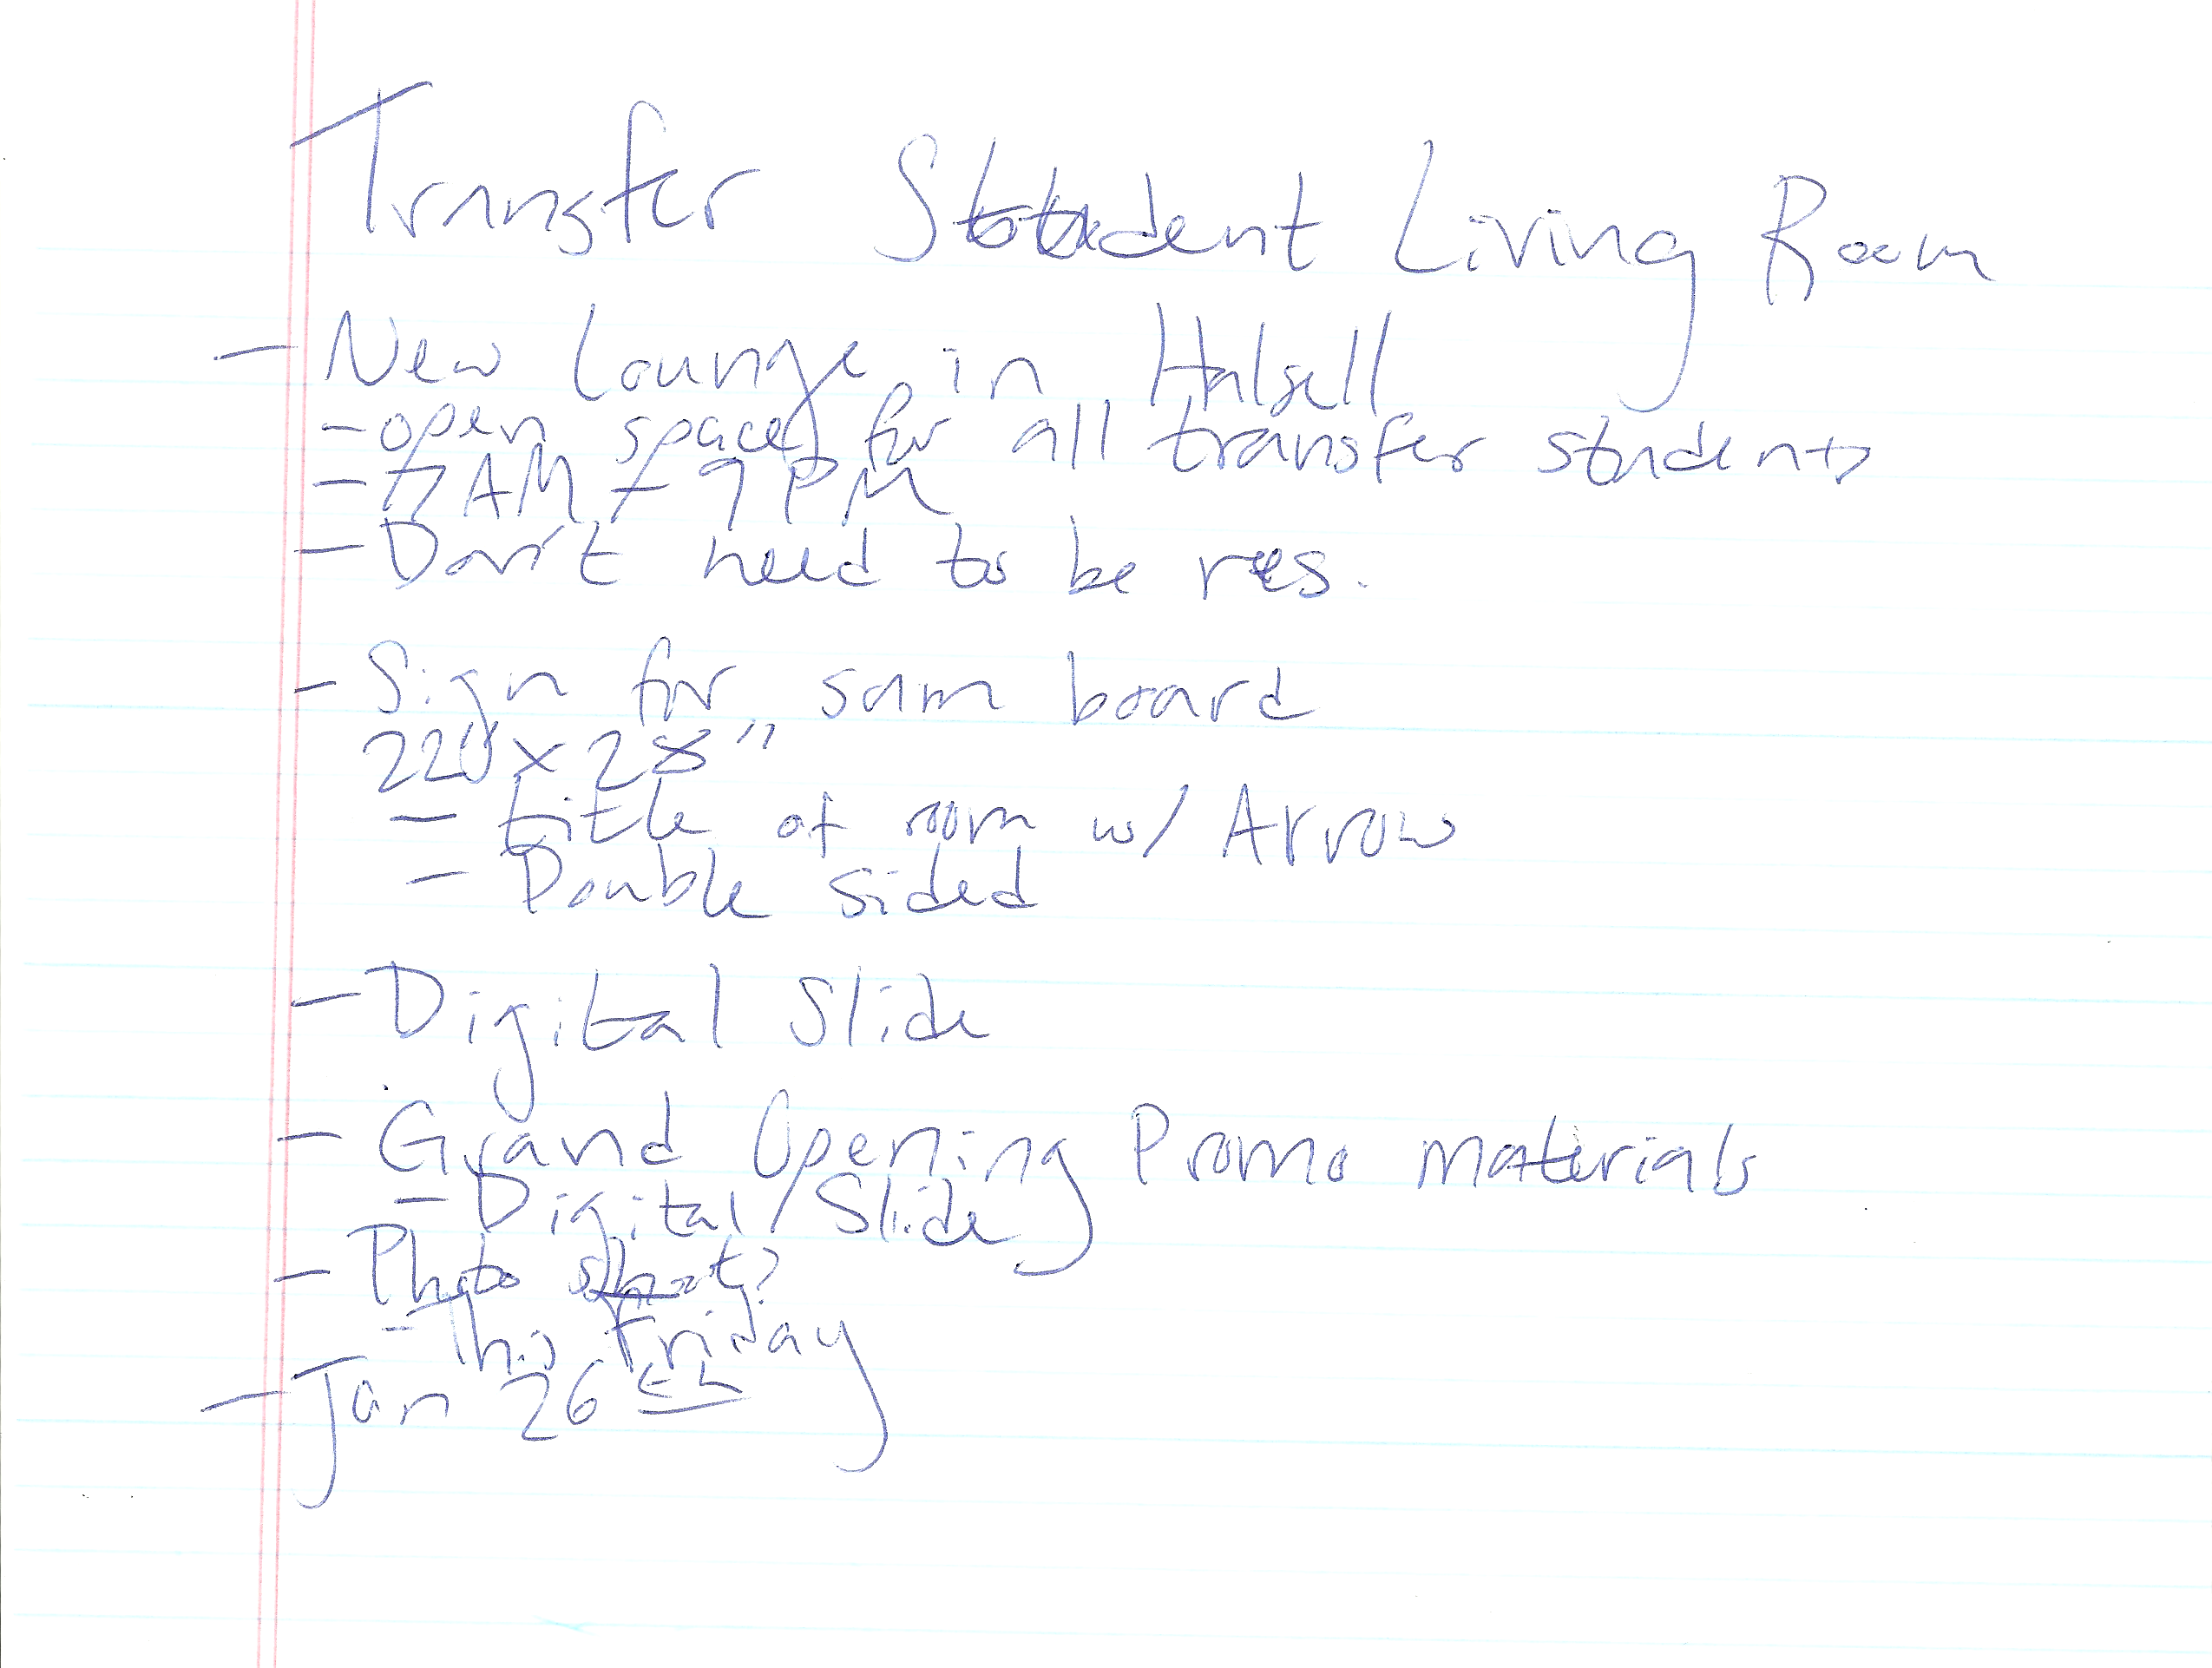 Transfer Student Living Room
- New Lounge in Halsell
- open space for all transfer students
- 7 AM - 9 PM
- Don't need to be res.
- Sign for sam board
22" x 28"
- title of room w/ Arrow
- Double sided
- Digital Slide
- Grand Opening Promo materials
- Digital Slide
- Photo shoot?
- This Friday
- Jan 26th